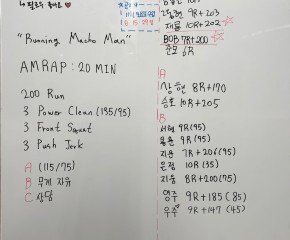 "Running Macho Man"
AMRAP : 20 MIN
200 Run
3 Power Clean (135/95)
3 Front Squat
3 Push Jerk
A (115/75)
B 무게 자유
C 상담
9R+203
10R+202
BOB 7R+200
준모 6R
A
상현 8R+170
승호 10R+205
B
서현 9R(95)
용훈 9R(95)
지용 7R+206(95)
은정 10R(35)
지웅 8R+200(75)
영주 9R+185(85)
우주 9R+147(45)